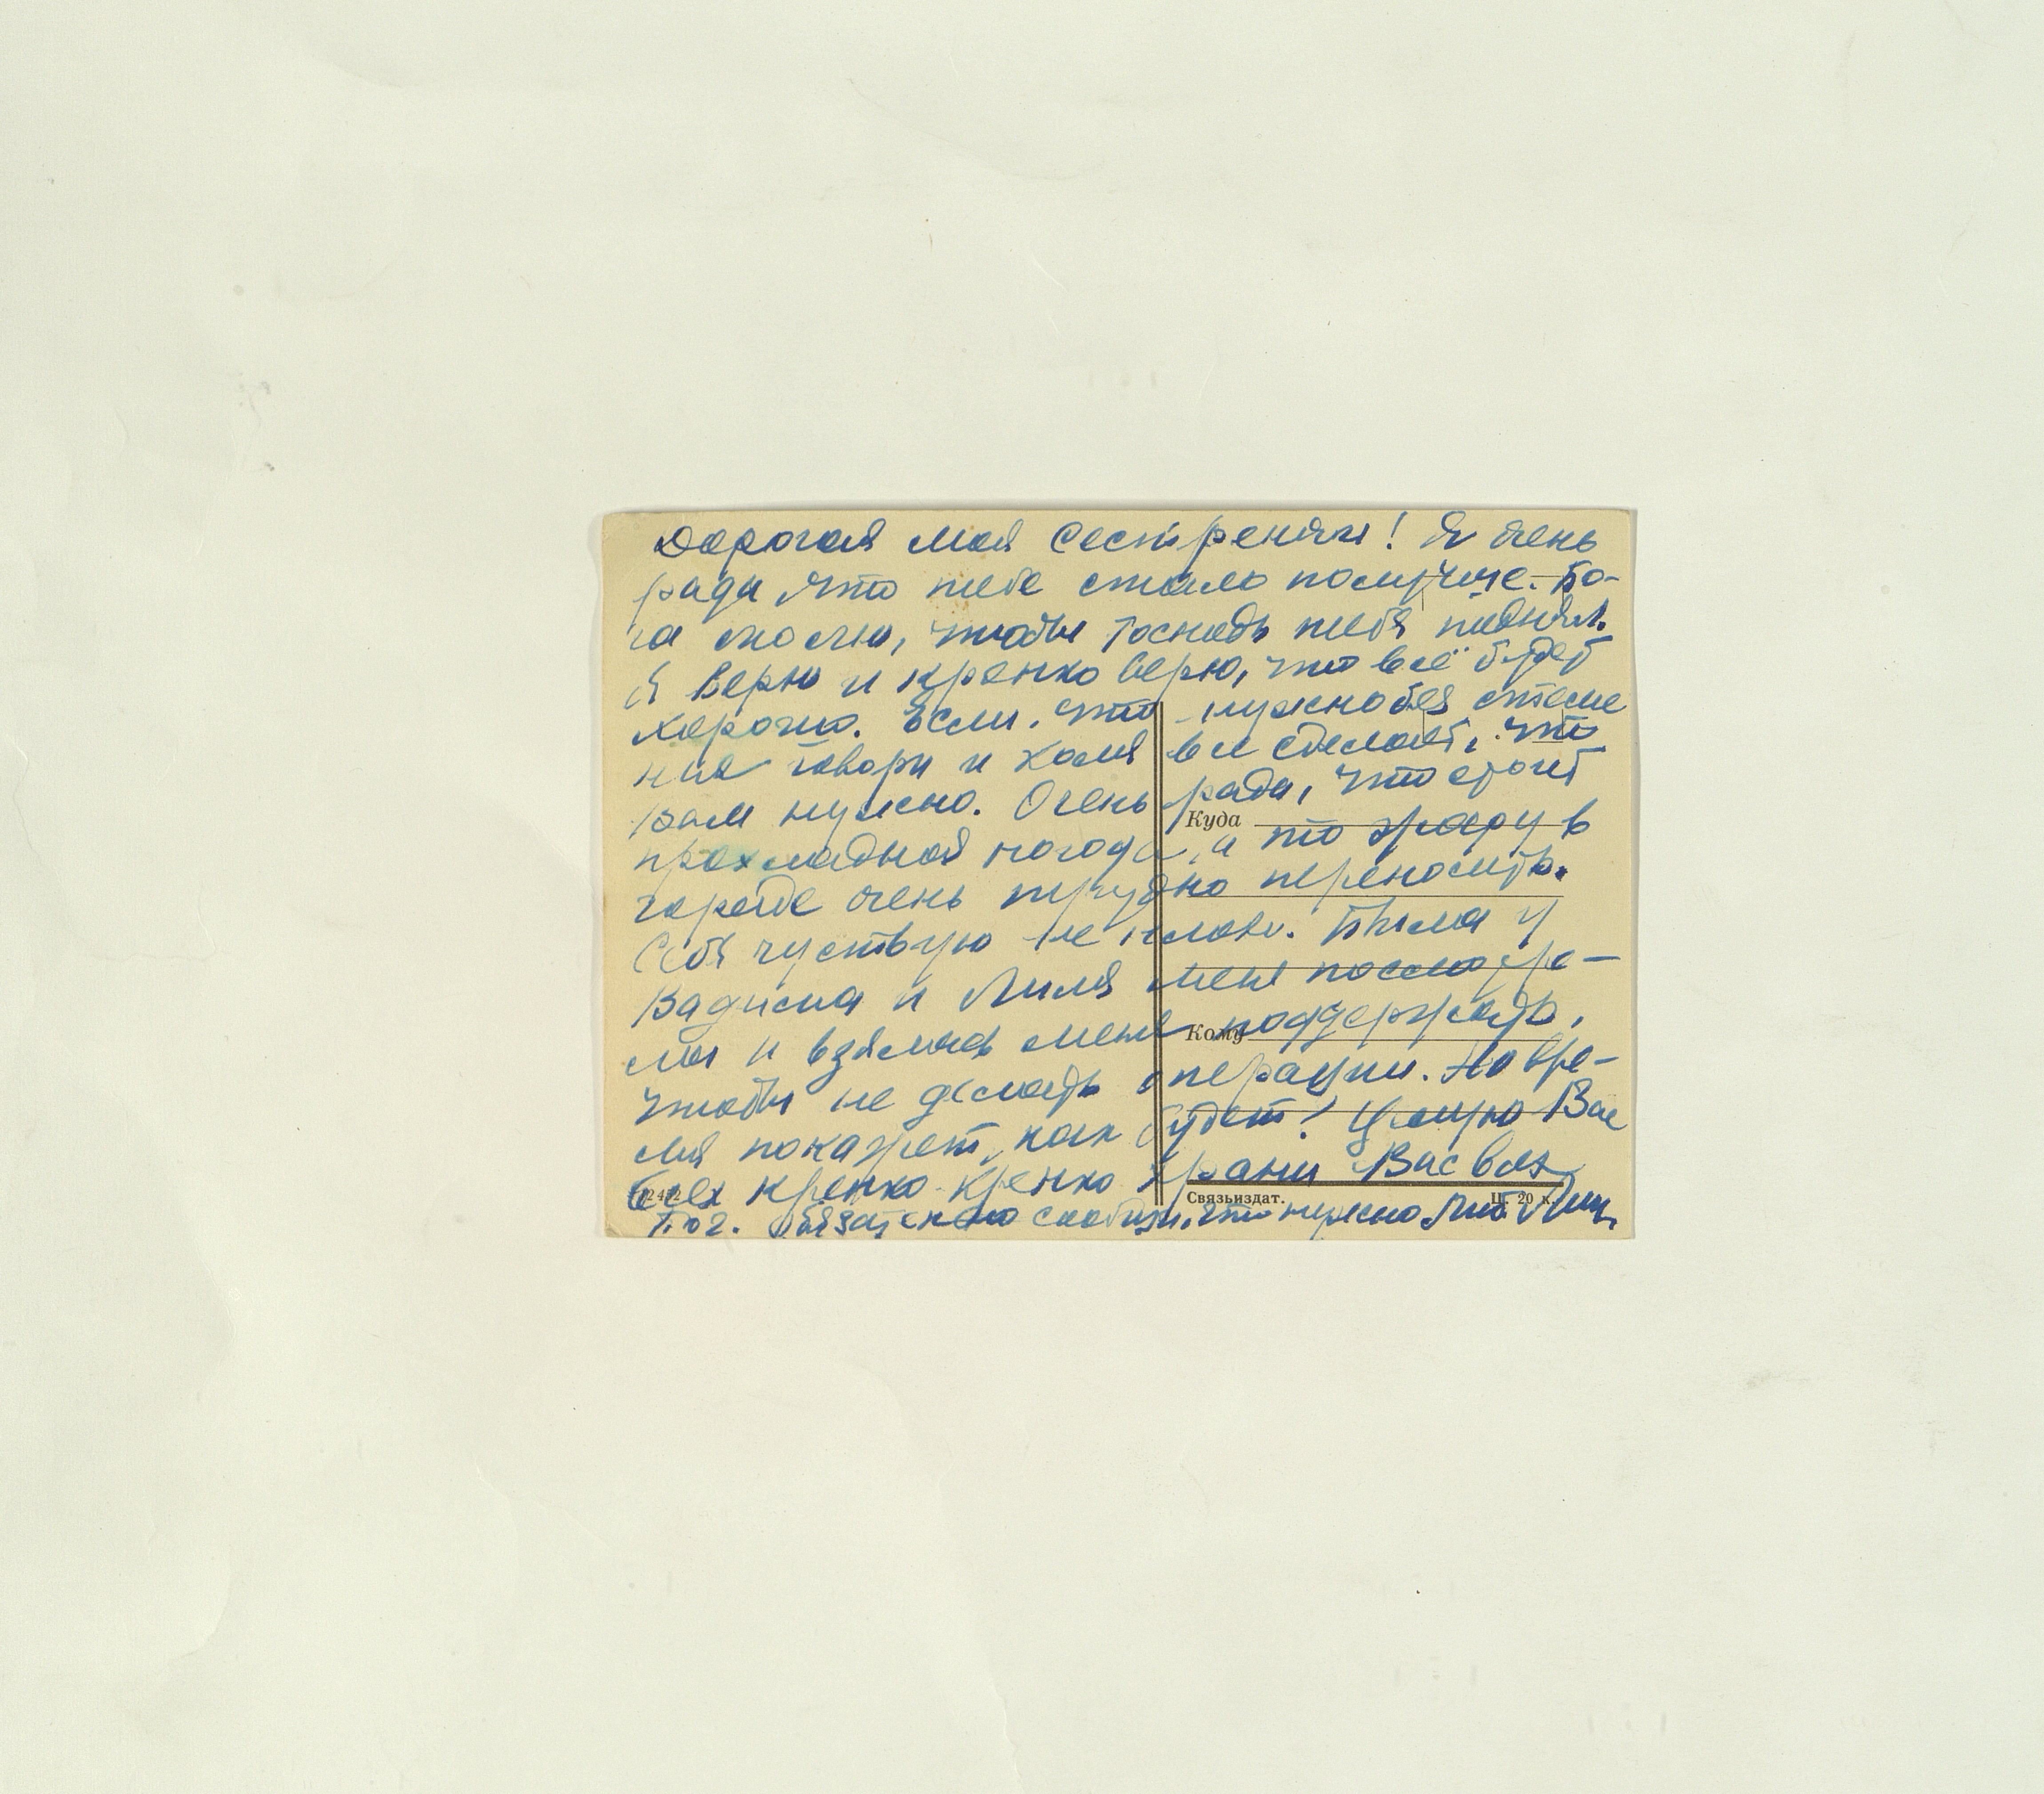 Дорогая моя сестрёнка! Я очень
рада что тебе стало получше. Бо-
га молю, чтобы Господь тебя поднял.
Я верю и крепко верю, что всё будет
хорошо. Если, что нужно без стесне
ния говори и Коля все сделает, что
Вам нужно. Очень рада, что стоит
Куда
прохладная погода, а то жару в
городе очень трудно переносить.
Себя чуствую не плохо. Была у
Вадима и Лиля меня посмотре-
ла и взялась меня поддержать,
Кому
чтобы не делать операции. Но вре-
мя покажет, как будет! Целую Вас
всех крепко крепко храни Вас всех
Связьиздат. Ц. 20 к.
Бог. Обязательно сообщи, что нужно